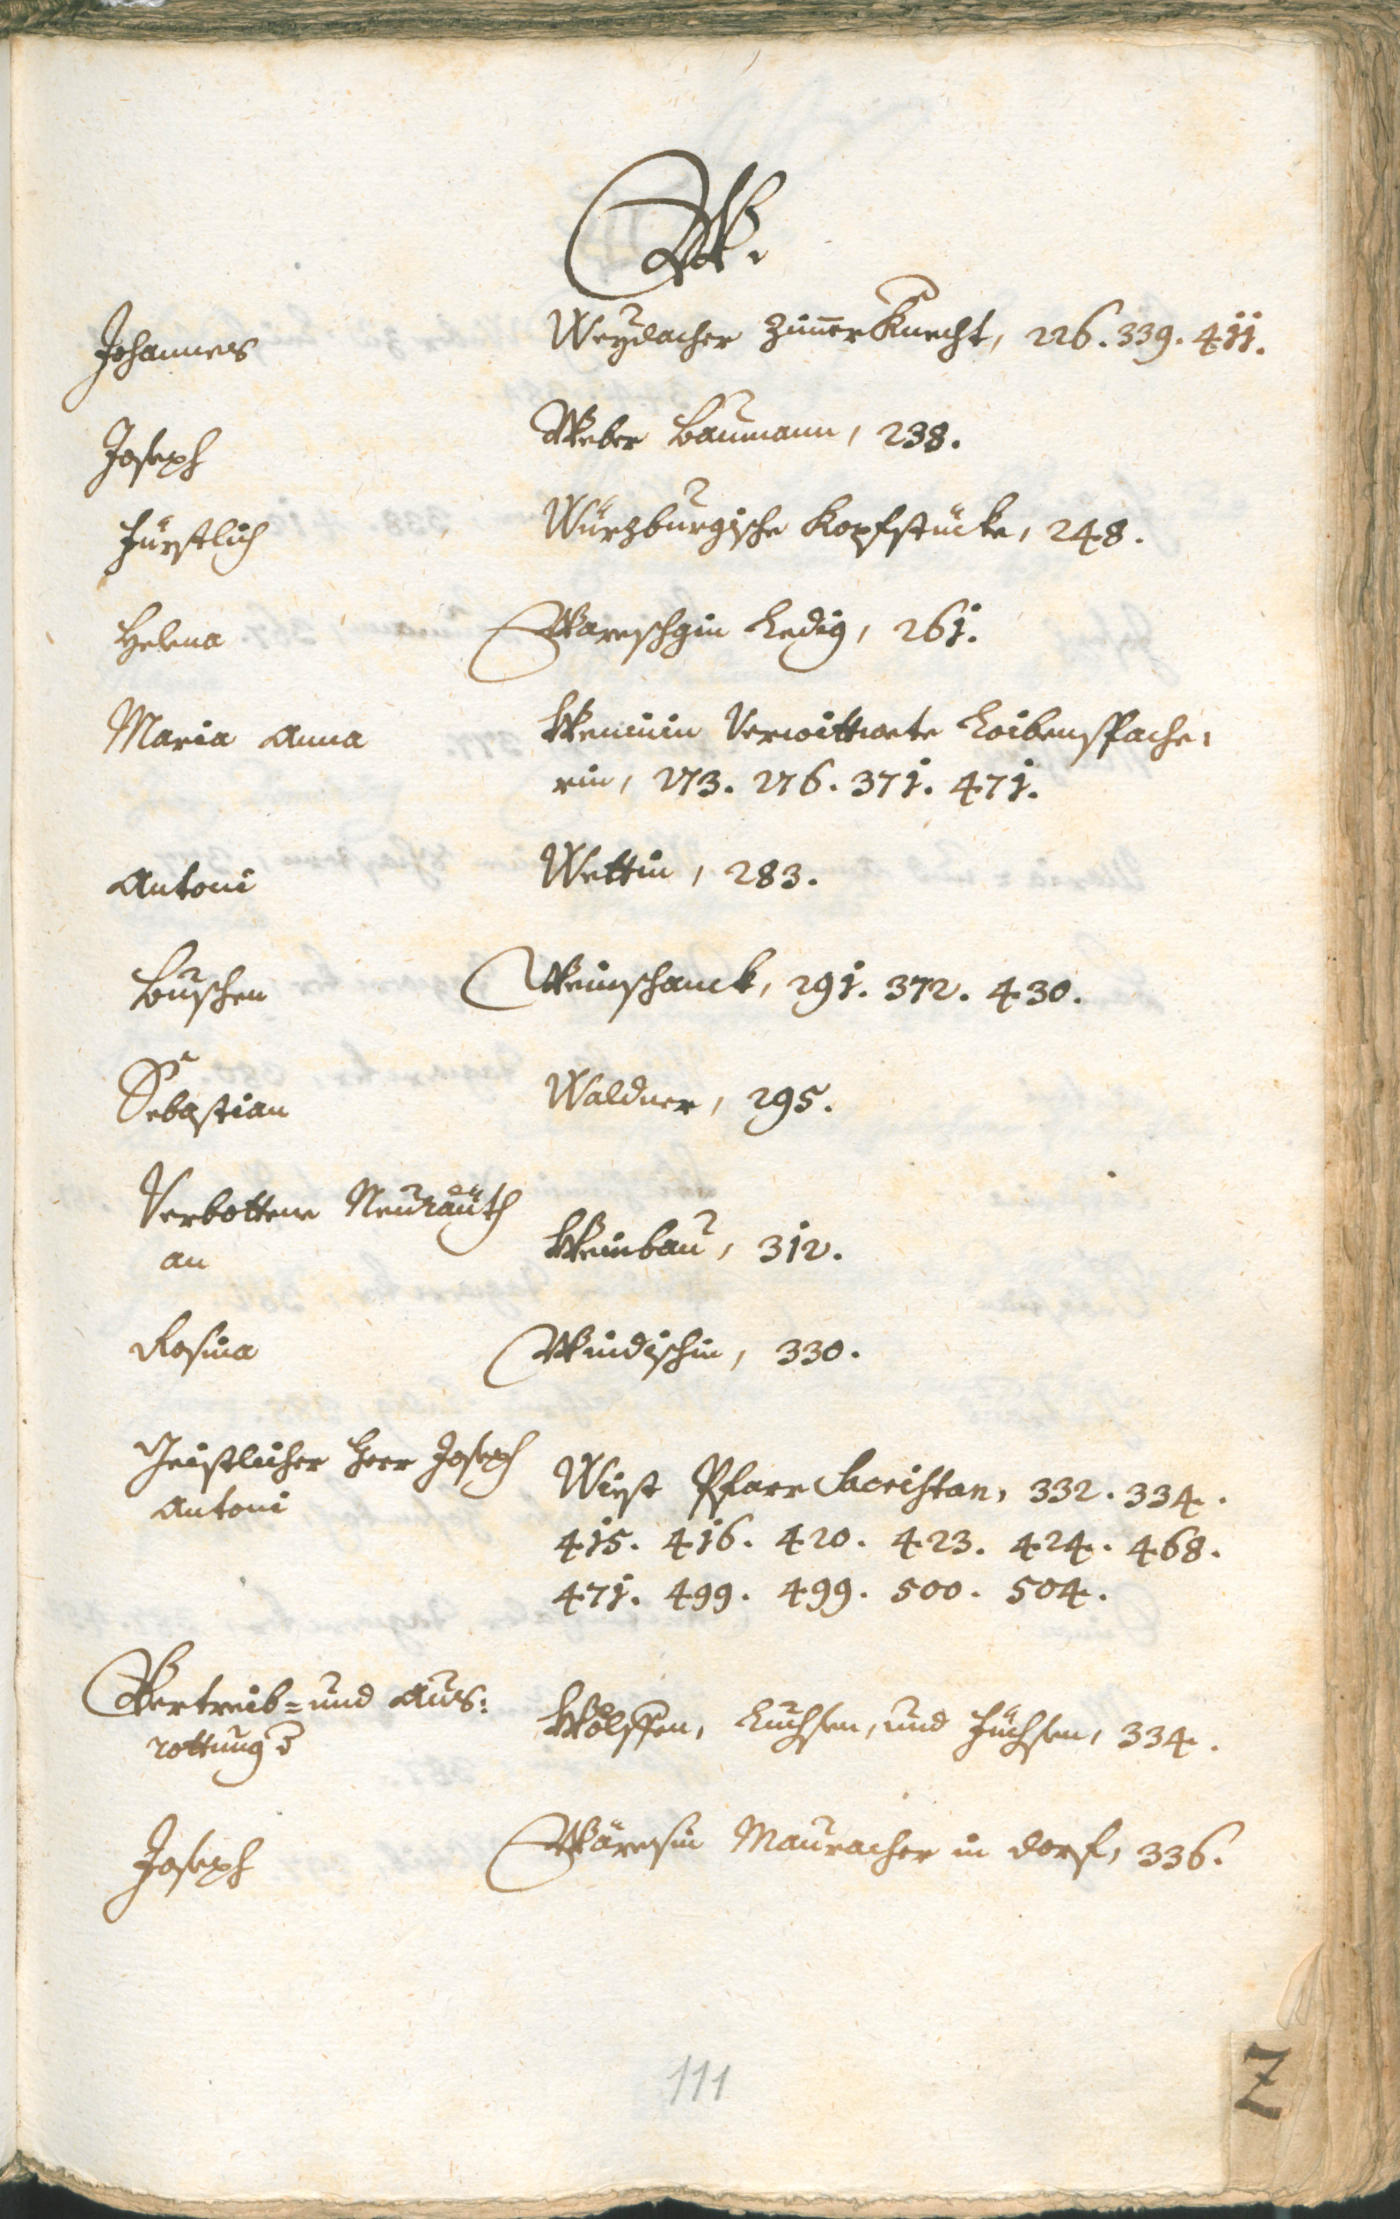 W.
Johannes Weydacher Zim̄erKnecht, 226. 339. 411.
Joseph Weber Baumann, 238.
Fürstlich Würzburgische Kopfstücke, 248.
Helena Ledig, 261.
Maria Anna Verwittwete
rin, 273. 276. 371. 471.
Antoni Wettin, 283.
Buschen Weinschanck, 291. 372. 430.
Sebastian Waldner, 295.
Verbottene Neuraüth
an Weinbau, 312.
Rosina Windischin, 330.
Geistlicher Herr Joseph
Antoni Wiest Pfarr Sacristan, 332. 334.
415. 416. 420. 423. 424. 468.
471. 499. 499. 500. 504.
Vertreib= und Aus:
rottung Wölffen, Luchsen, und Füchsen, 334.
Joseph Mauracher in dorf, 336.
111
Z